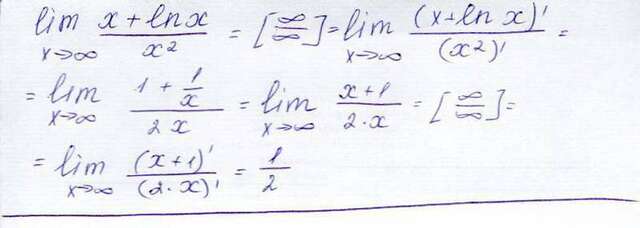 lim x→∞ (x + ln x)/x² = [∞/∞] = lim x→∞ (x + ln x)'/(x²)' =
= lim x→∞ (1 + 1/x)/(2x) = lim x→∞ (x + 1)/(2·x) = [∞/∞] =
= lim x→∞ (x + 1)'/(2·x)' = 1/2